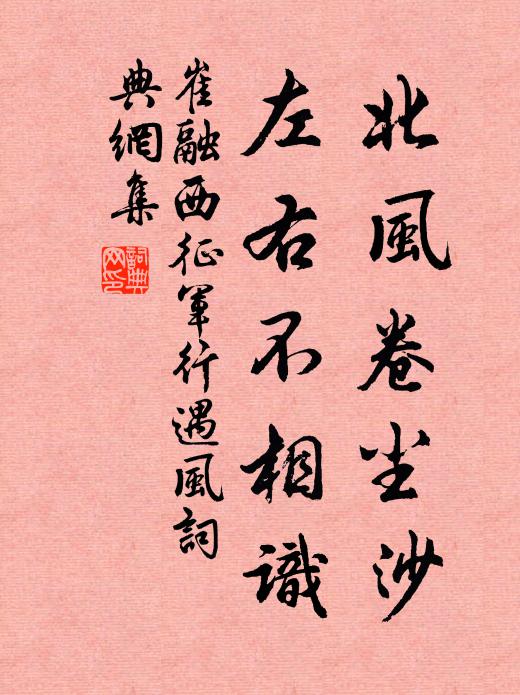 北風卷尘沙
左右不相識
崔融西征軍行遇風詞
典網集
詞典
网印